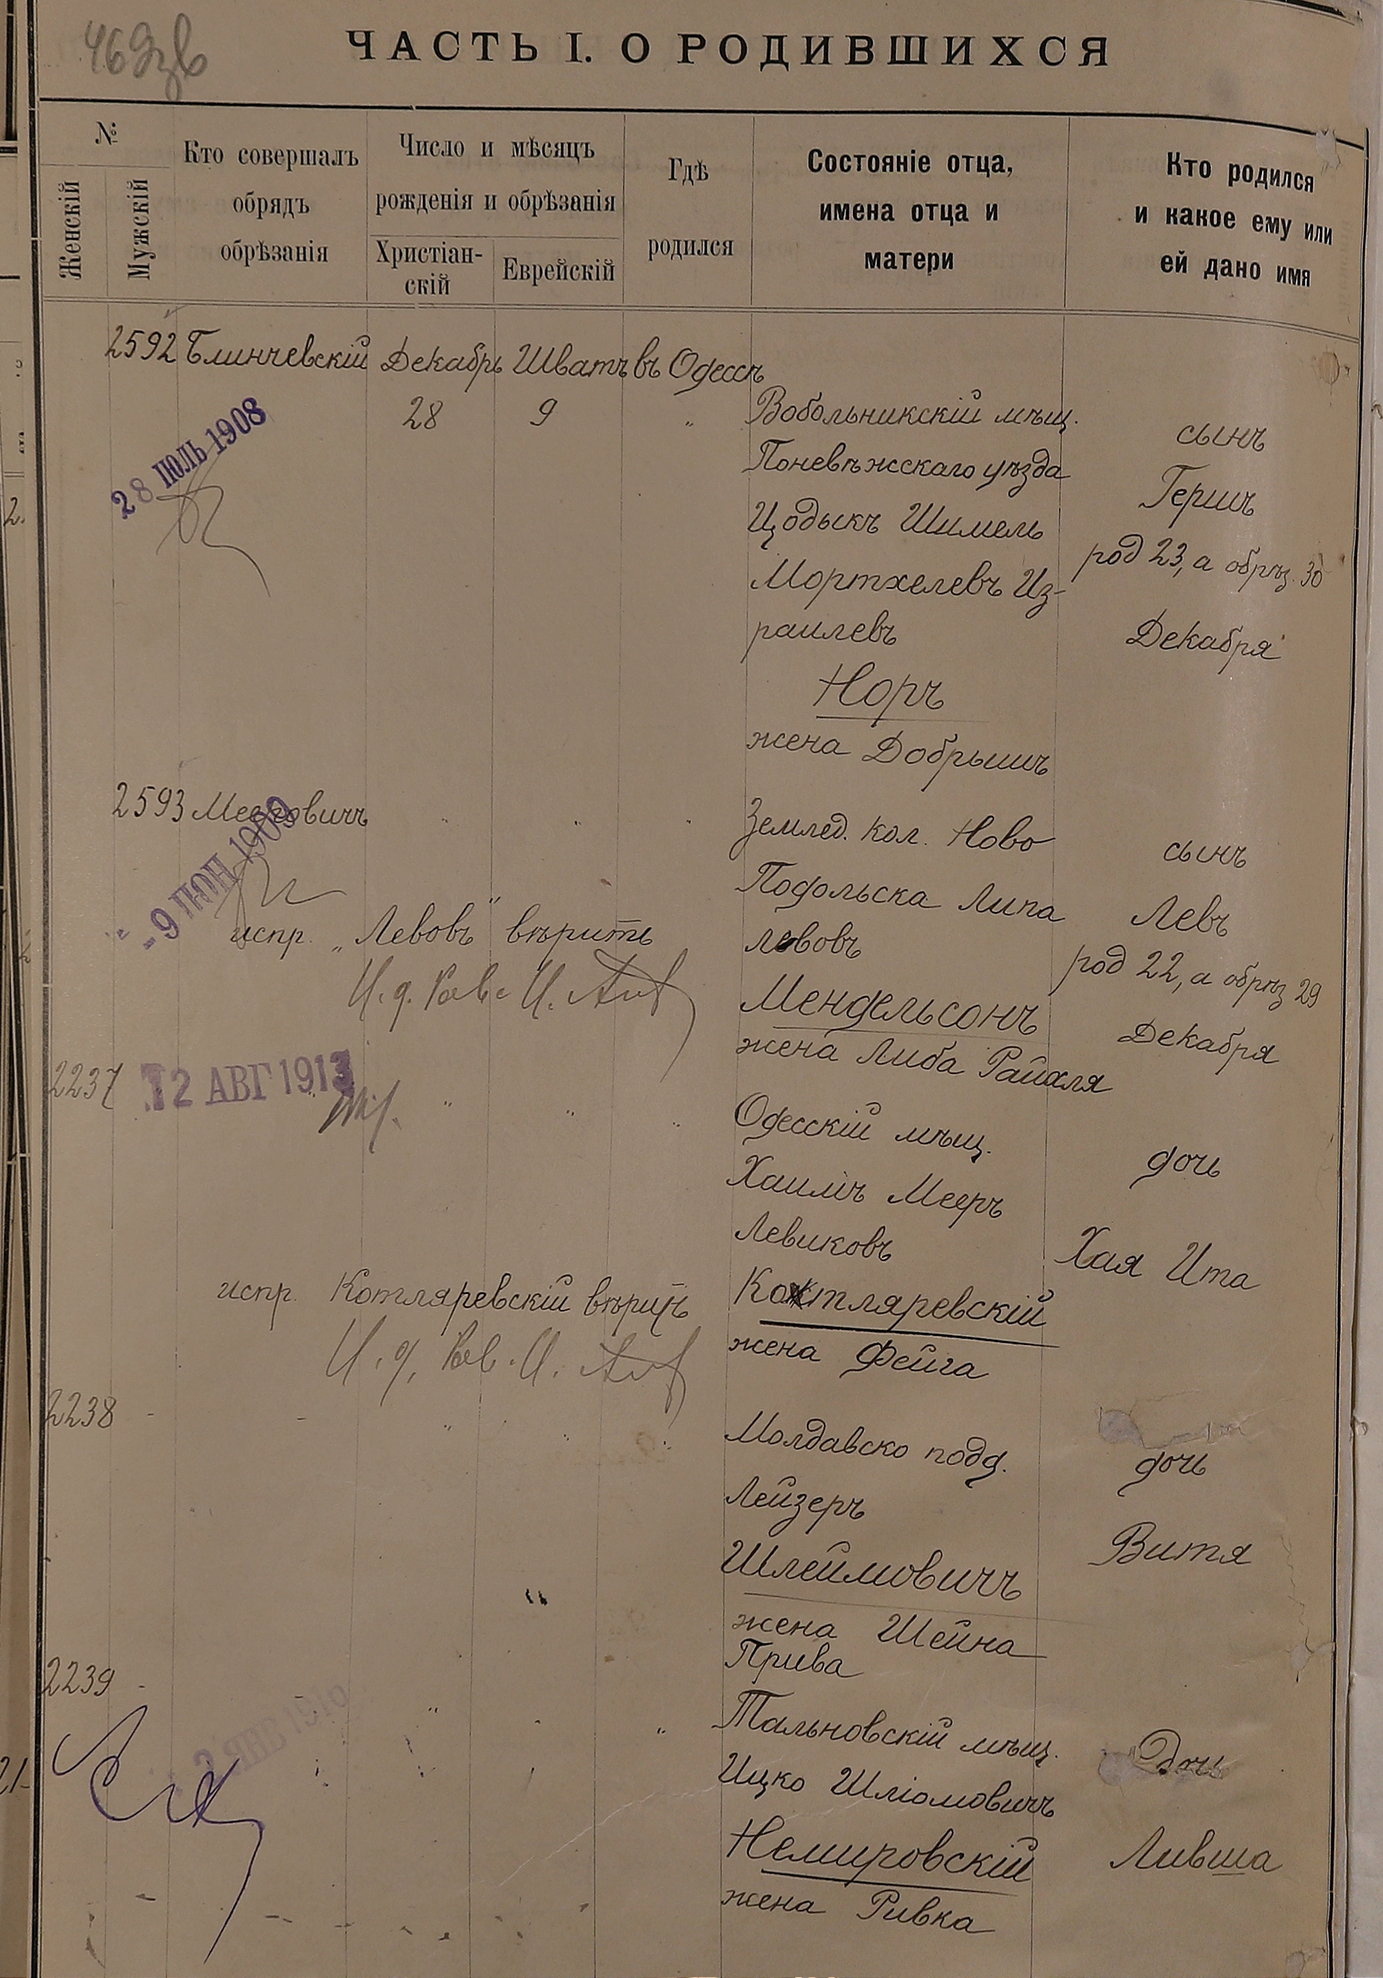 ЧАСТЬ I. О РОДИВШИХСЯ
№
Женскій
Мужскій
Кто совершалъ
обрядъ
обрѣзанія
Число и мѣсяцъ
рожденія и обрѣзанія
Христіан-
скій
Еврейскій
Гдѣ
родился
Состояніе отца,
имена отца и
матери
Кто родился
и какое ему или
ей дано имя
2592 Блинчевскій Декабрь Шватъ въ Одессѣ
28 9 "
28 ІЮЛЬ 1908
Вобольникскій мѣщ.
Поневѣжскаго уѣзда
Цодыкъ Шимель
Мортхелевъ Из-
раилевъ
Норъ
жена Добрышъ
сынъ
Гершъ
род 23, а обрѣз. 30
Декабря
2593 Мееровичъ " " "
9 ІЮН 1909
Землед. кол. Ново
Подольска Липа
Левовъ
Мендельсонъ
жена Либа Райхля
сынъ
Левъ
род 22, а обрѣз 29
Декабря
испр. „Левовъ" вѣрить
И. д. Рав.
2237 " " "
12 АВГ 1913
Одесскій мѣщ.
Хаимъ Мееръ
Левиковъ
Котляревскій
жена Фейга
дочь
Хая Ита
испр. Котляревскій вѣрить
И. д. Рав.
2238 - - " " "
Молдавско подд.
Лейзеръ
Шлеймовичъ
жена Шейна
Прива
дочь
Витя
2239 - " - "
1910
Тальновскій мѣщ.
Ицко Шліомовичъ
Немировскій
жена Ривка
Дочь
Ливша